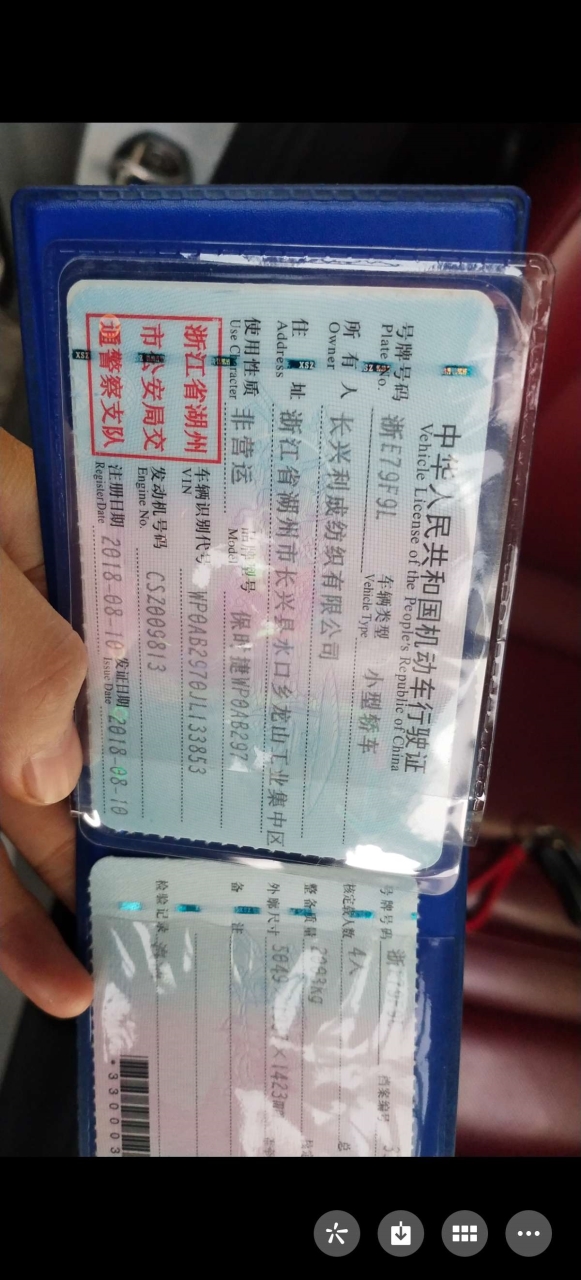 中华人民共和国机动车行驶证
Vehicle License of the People's Republic of China
号牌号码 浙E79F91 车辆类型 小型轿车
Plate No. Vehicle Type
所有人 长兴利成纺织有限公司
Owner
住址 浙江省湖州市长兴县水口乡龙山工业集中区
Address
使用性质 非营运 品牌型号 保时捷WP0AB297
Use Character Model
浙江省湖州
市公安局交
通警察支队
车辆识别代号 WP0AB2970JL133853
VIN
发动机号码 CSZ009813
Engine No.
注册日期 2018-08-10 发证日期 2018-08-10
Register Date Issue Date
号牌号码 浙 档案编号
核定载人数 4人 总
整备质量
外廓尺寸 5049 ×1423
备注
检验记录
*330003